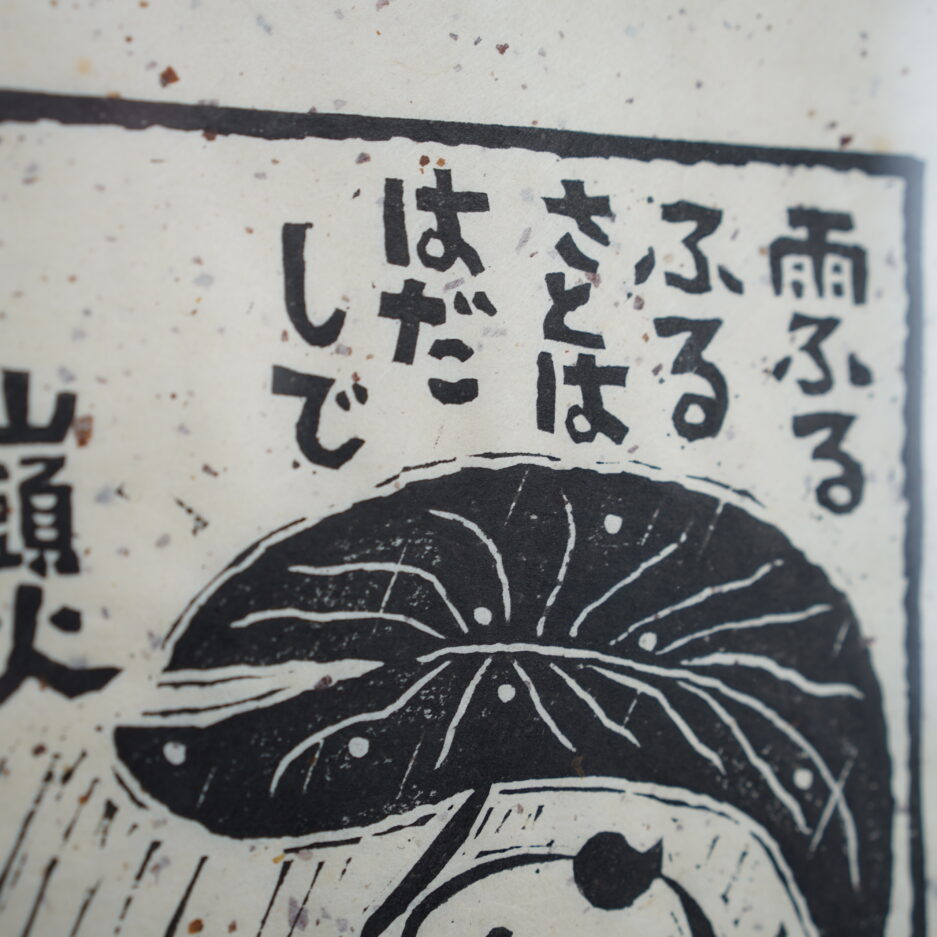 雨ふる
ふる
さとは
はだ
しで
山頭火